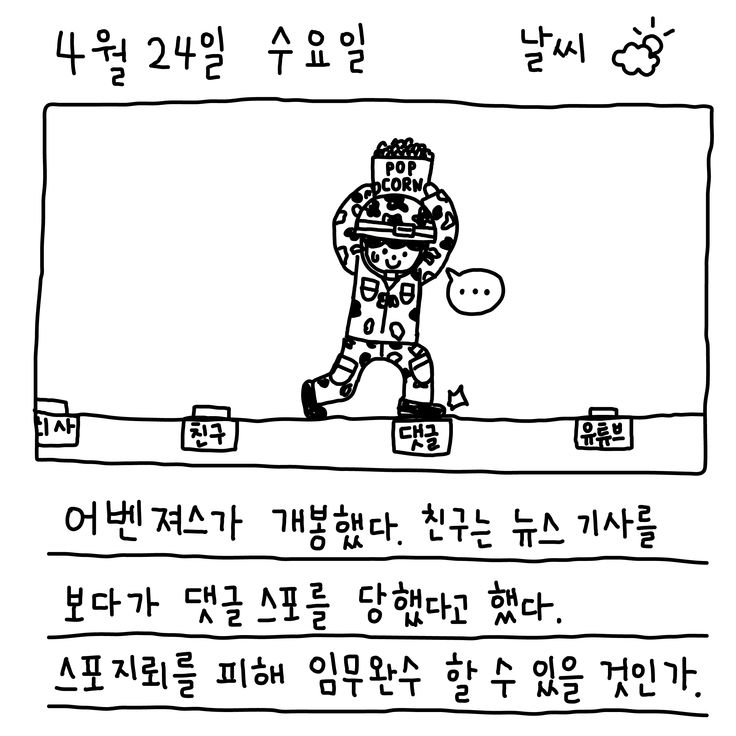 4월 24일 수요일 날씨
POP
CORN
...
기사
친구
댓글
유튜브
어벤져스가 개봉했다. 친구는 뉴스 기사를
보다가 댓글 스포를 당했다고 했다.
스포지뢰를 피해 임무완수 할 수 있을 것인가.